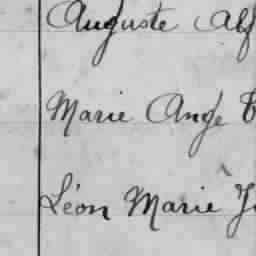 Auguste Alf
Marie Ange
Léon Marie